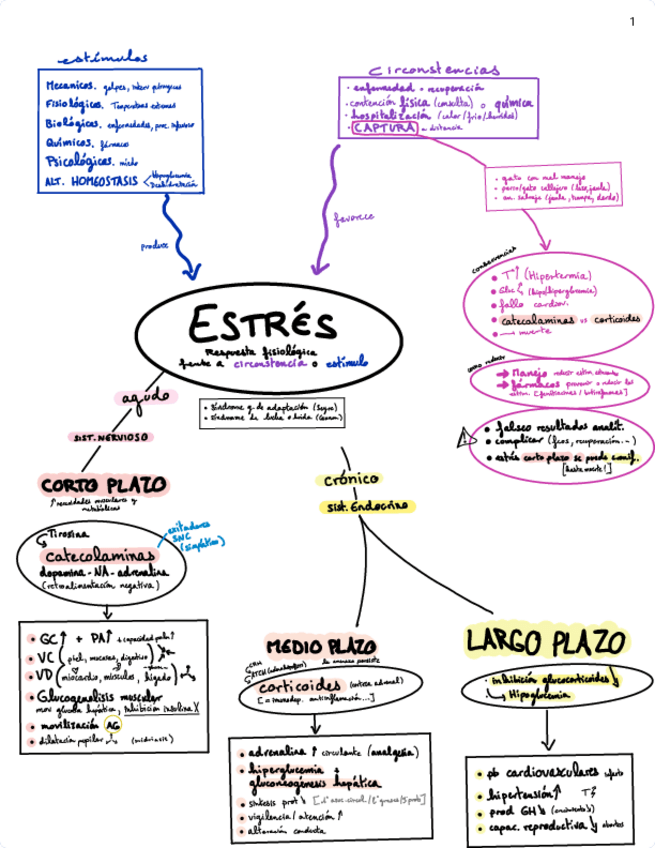 1
estímulos
Mecánicos. golpes,
Fisiológicos. Temperaturas extremas
Biológicos. enfermedades,
Químicos. fármaco
Psicológicos. miedo
ALT. HOMEOSTASIS Hipoglucemia
Deshidratación
circunstancias
• enfermedad o recuperación
• contención física (consulta) o química
• hospitalización (calor/frío/heridas)
• CAPTURA - distancia
• gato con mal manejo
• perro/gato callejero (lazo, jaula)
• an. salvaje (jaula, trampa, dardo)
produce
favorece
consecuencias
• T↑ (Hipertermia)
• Glc (hipo/hiperglucemia)
• fallo cardiov.
• catecolaminas vs corticoides
• → muerte
ESTRÉS
Respuesta fisiológica
frente a circunstancia o estímulo
• Síndrome g. de adaptación (Seyre)
• Síndrome de lucha o huida (Canon)
como reducir
→ Manejo reducir estim.
→ fármacos prevenir o reducir los
estim.
• falseo resultados analít.
• complicar (fcos, recuperación...)
• estrés corto plazo se puede
[hasta muerte!]
agudo
SIST. NERVIOSO
CORTO PLAZO
↑ necesidades musculares y
metabólicas
Tirosina
catecolaminas
dopamina - NA - adrenalina
(retroalimentación negativa)
exitadores
SNC
(simpático)
• GC↑ + PA↑ + capacidad pulm↑
• VC (piel, mucosas, digestivo)
• VD (miocardio, músculos, hígado)
• Glucogenolisis muscular
glucosa hepática, inhibición insulina
• movilización AG
• dilatación pupilar (midriasis)
crónico
sist. Endocrino
MEDIO PLAZO
la amenaza persiste
CRH
ACTH
corticoides (corteza adrenal)
[= inmunodep. antiinflamación...]
• adrenalina ↑ circulante (analgesia)
• hiperglucemia +
gluconeogénesis hepática
• síntesis prot ↓
• vigilancia / atención ↑
• alteración conducta
LARGO PLAZO
• inhibición glucocorticoides ↓
↳ Hipoglucemia
• pb cardiovasculares infarto
• hipertensión↑ T↑
• prod GH↓ (crecimiento↓)
• capac. reproductiva ↓ abortos